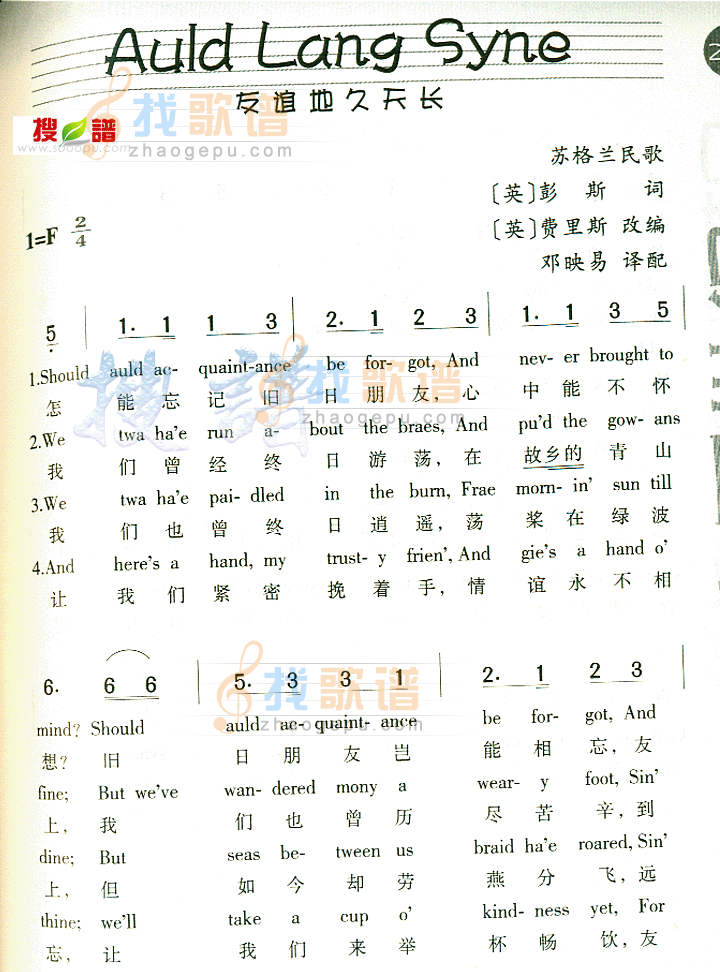 Auld Lang Syne
友谊地久天长
搜谱
www.sooopu.com
找歌谱
zhaogepu.com
苏格兰民歌
[英]彭 斯 词
[英]费里斯 改编
邓映易 译配
1=F 2/4
5 | 1. 1 1 3 | 2. 1 2 3 | 1. 1 3 5 |
1.Should auld ac- quaint-ance be for- got, And nev- er brought to
怎 能 忘 记 旧 日 朋 友, 心 中 能 不 怀
2.We twa ha'e run a- bout the braes, And pu'd the gow- ans
我 们 曾 经 终 日 游 荡, 在 故乡的 青 山
3.We twa ha'e pai- dled in the burn, Frae morn- in' sun till
我 们 也 曾 终 日 逍 遥, 荡 桨 在 绿 波
4.And here's a hand, my trust- y frien', And gie's a hand o'
让 我 们 紧 密 挽 着 手, 情 谊 永 不 相
搜谱
找歌谱
zhaogepu.com
6. 6 6 | 5. 3 3 1 | 2. 1 2 3 |
mind? Should auld ac- quaint- ance be for- got, And
想? 旧 日 朋 友 岂 能 相 忘, 友
fine; But we've wan- dered mony a wear- y foot, Sin'
上, 我 们 也 曾 历 尽 苦 辛, 到
dine; But seas be- tween us braid ha'e roared, Sin'
上, 但 如 今 却 劳 燕 分 飞, 远
thine; we'll take a cup o' kind- ness yet, For
忘, 让 我 们 来 举 杯 畅 饮, 友
找歌谱
zhaogepu.com